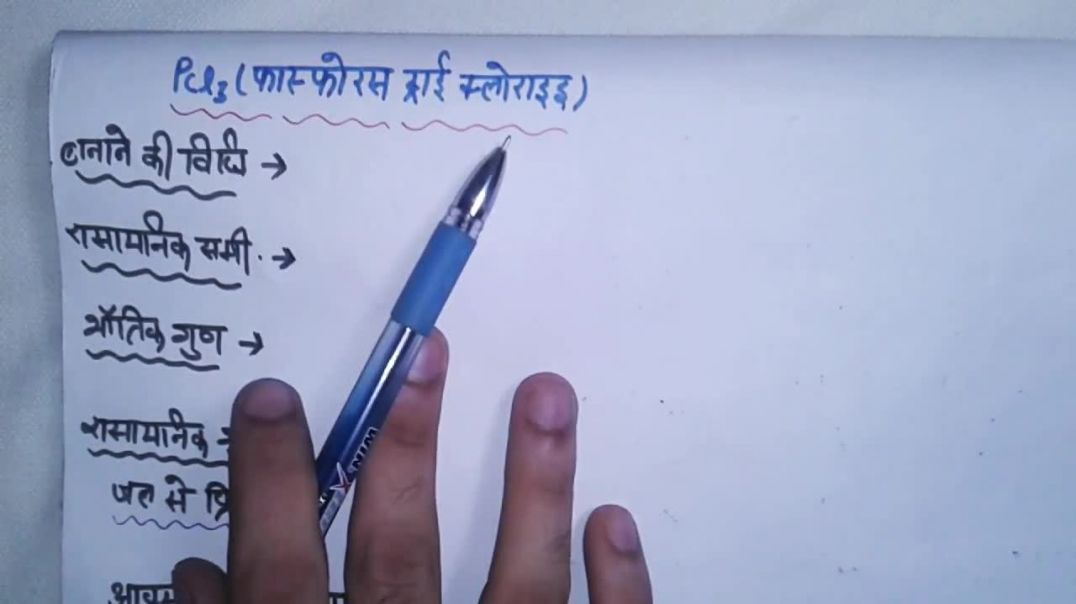 PCl3 (फास्फोरस ट्राई क्लोराइड)
बनाने की विधि →
रासायनिक समी. →
भौतिक गुण →
रासायनिक
जल से
WIN